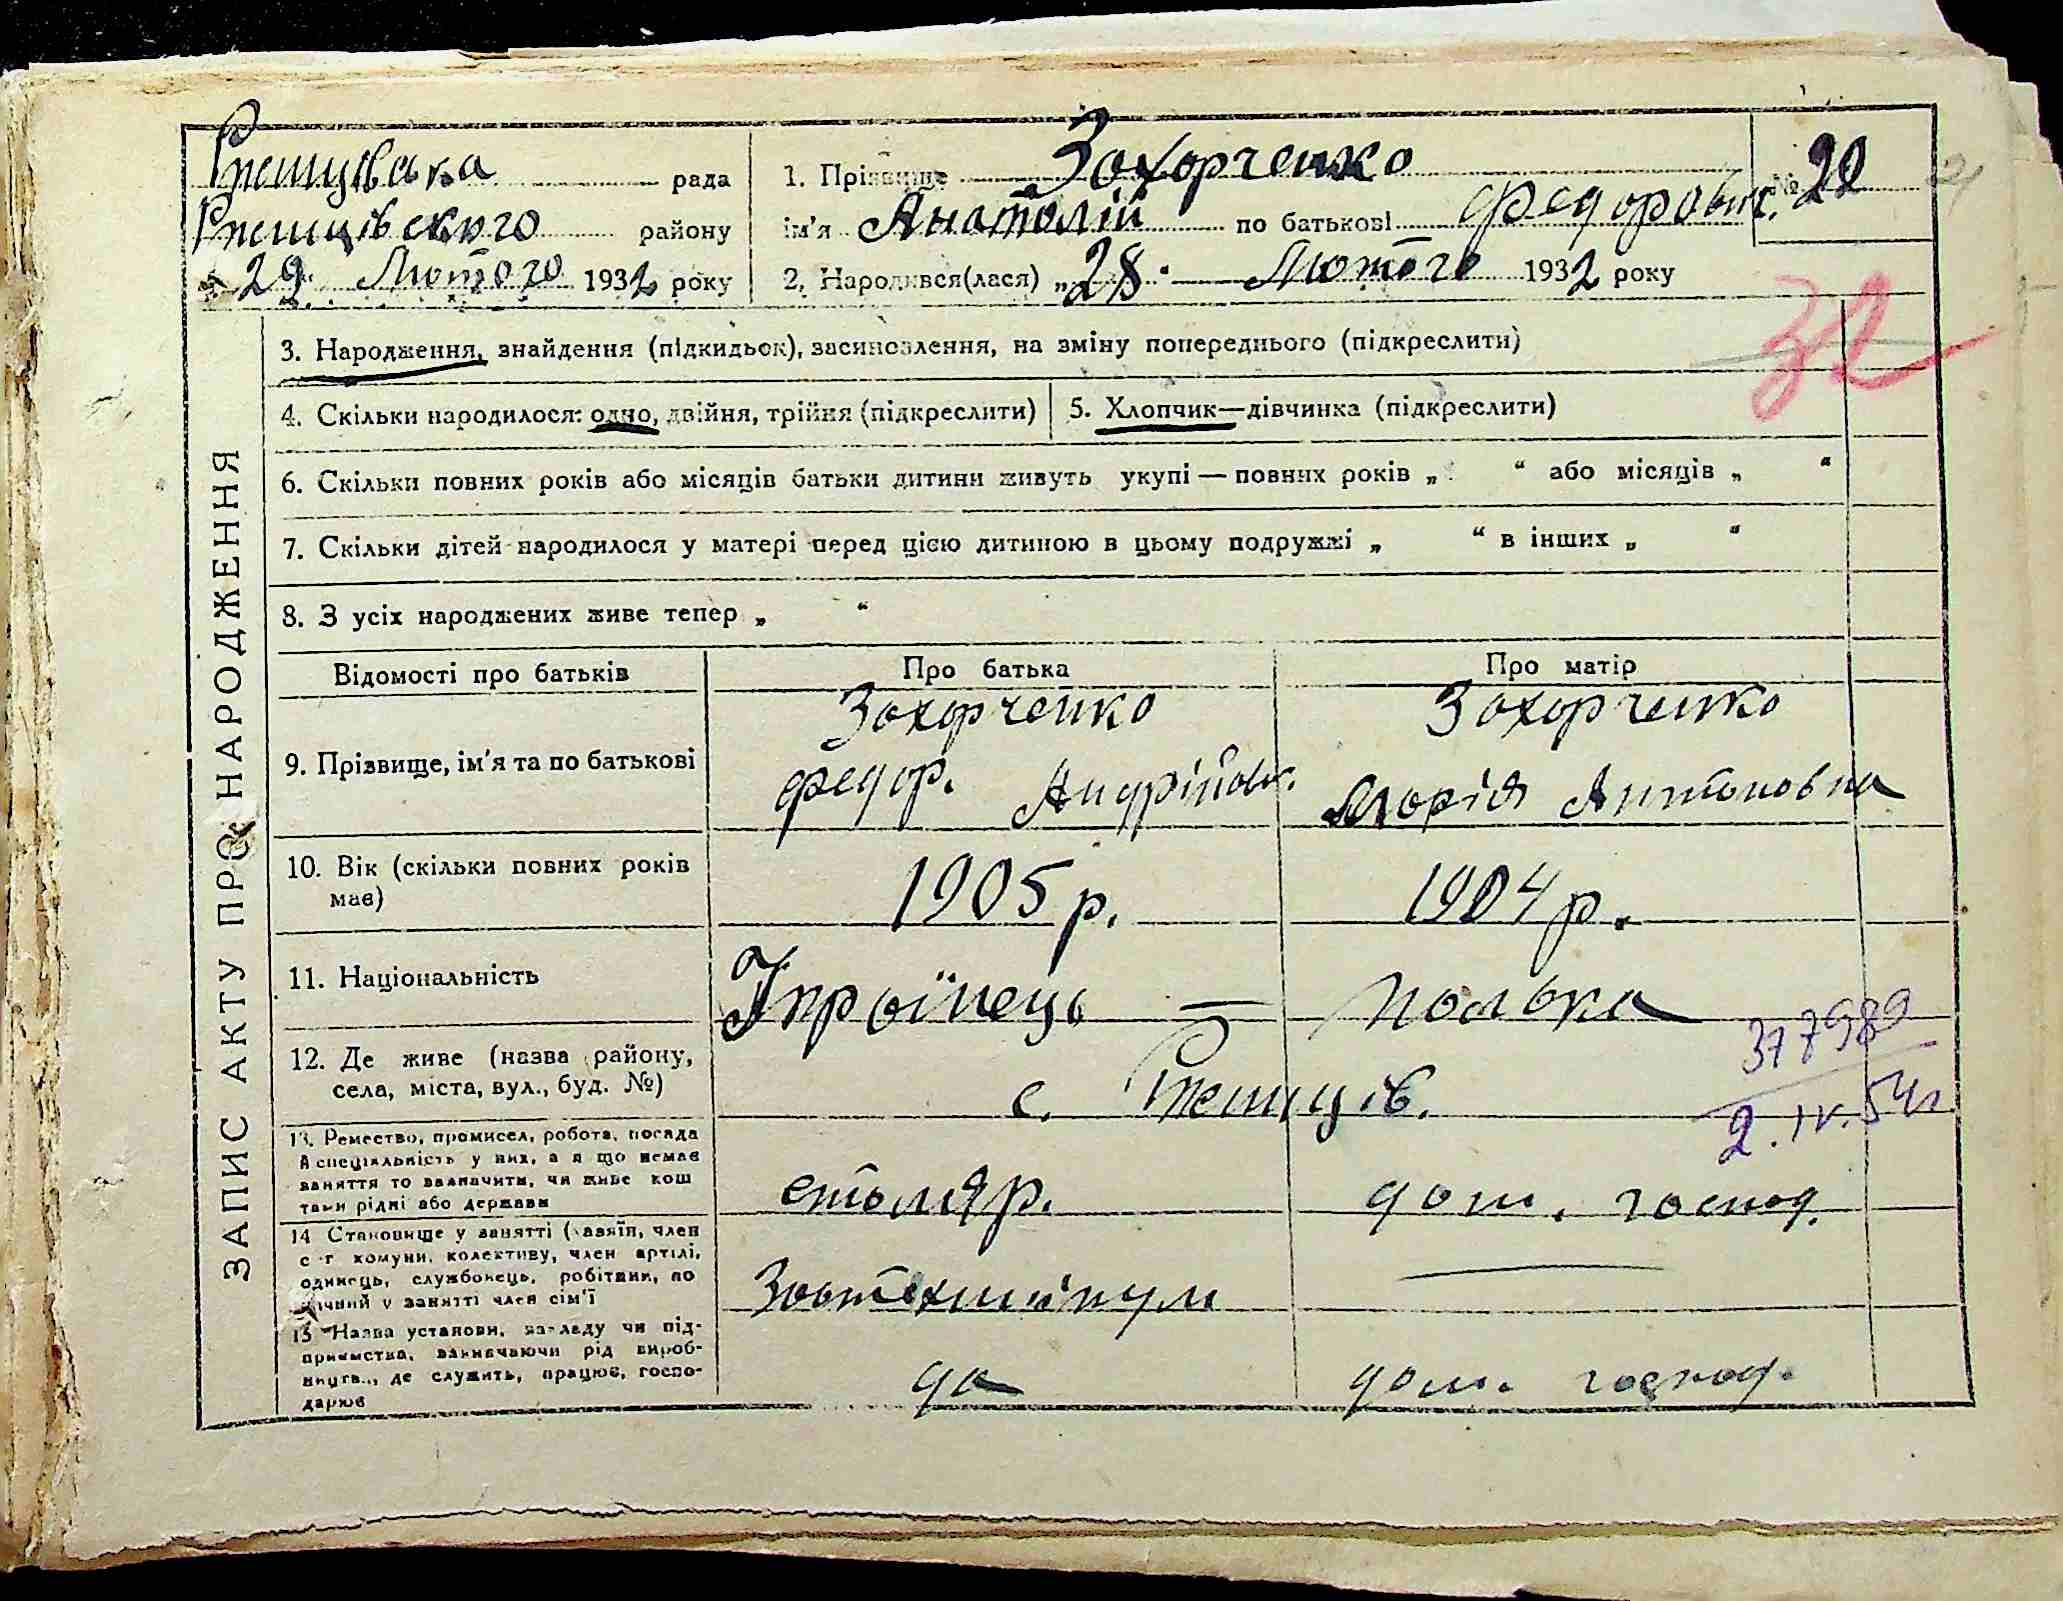 Ржищівська рада
Ржищівского району
29 Лютого 1932 року
1. Прізвище Захарченко
ім'я Анатолій по батькові Федорович.
№ 22
2. Народився(лася) „28" Лютого 1932 року
32
ЗАПИС АКТУ ПРО НАРОДЖЕННЯ
3. Народження, знайдення (підкидьок), засиновлення, на зміну попереднього (підкреслити)
4. Скільки народилося: одно, двійня, трійня (підкреслити)
5. Хлопчик—дівчинка (підкреслити)
6. Скільки повних років або місяців батьки дитини живуть укупі — повних років „ “ або місяців „ “
7. Скільки дітей народилося у матері перед цією дитиною в цьому подружжі „ “ в інших „ “
8. З усіх народжених живе тепер „ “
Відомості про батьків
Про батька
Про матір
9. Прізвище, ім'я та по батькові
Захарченко
Федор. Андрійов.
Захарченко
Марія Антоновна
10. Вік (скільки повних років
має)
1905 р.
1904 р.
11. Національність
Украінець —
Полька
12. Де живе (назва району,
села, міста, вул., буд. №)
с. Ржищів.
317989
2.IV.54г
13. Ремество, промисел, робота, посада
А спеціяльність у них, а я що немає
заняття то зазначити, чи живе кош
тами рідні або держави
столяр.
дом. господ.
14 Становище у занятті (хазяїн, член
с-г комуни, колективу, член артілі,
одинець, службонець, робітник, по
мічний у занятті член сім'ї
Зоотехникум
15 Назва установи, закладу чи під-
приємства, зазначаючи рід вироб-
ництв.., де служить, працює, госпо-
дарює
да
дом. господ.